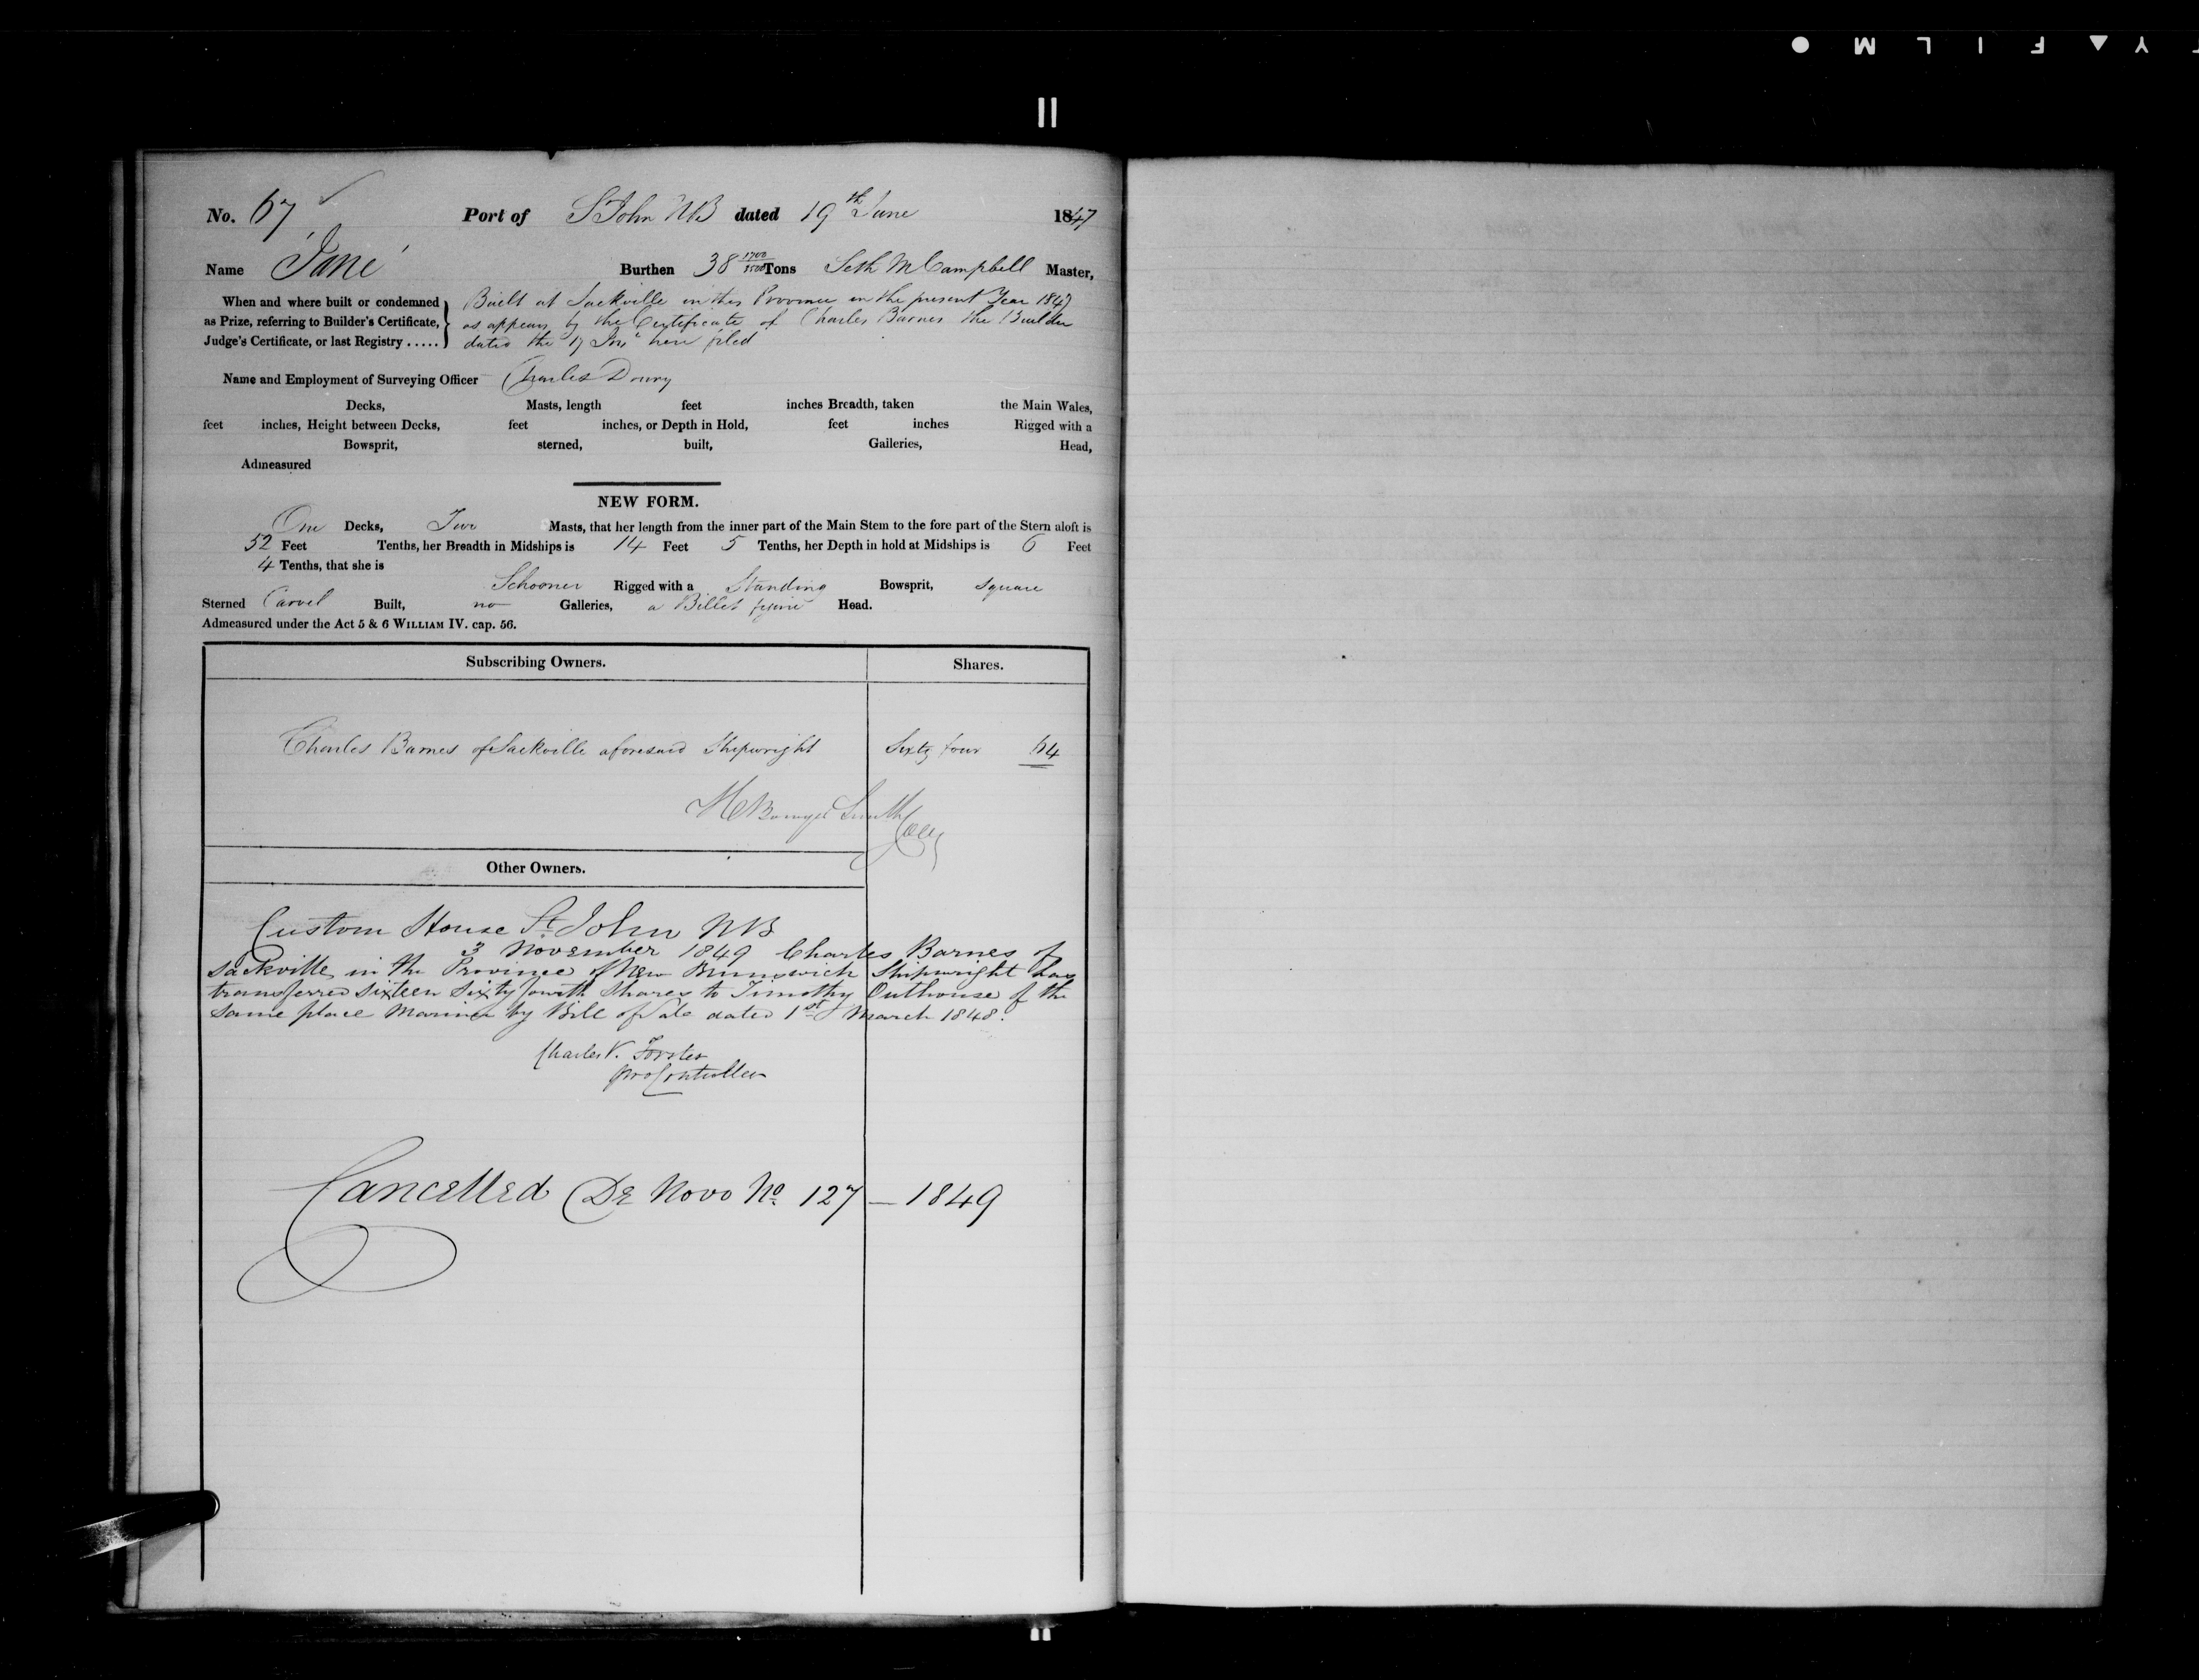 No. 67 Port of St John NB dated 19th June 1847
Name 'Jane' Burthen 38 1700/3500 Tons Seth McCampbell Master,
When and where built or condemned as Prize, referring to Builder's Certificate, Judge's Certificate, or last Registry .....
Built at Sackville in this Province in the present Year 1847
as appears by the Certificate of Charles Barnes the Builder
dated the 17 here filed
Name and Employment of Surveying Officer Charles Drury
Decks, Masts, length feet inches Breadth, taken the Main Wales,
feet inches, Height between Decks, feet inches, or Depth in Hold, feet inches Rigged with a
Bowsprit, sterned, built, Galleries, Head,
Admeasured
NEW FORM.
One Decks, Two Masts, that her length from the inner part of the Main Stem to the fore part of the Stern aloft is
52 Feet Tenths, her Breadth in Midships is 14 Feet 5 Tenths, her Depth in hold at Midships is 6 Feet
4 Tenths, that she is
Schooner Rigged with a Standing Bowsprit, square
Sterned Carvel Built, no Galleries, a Billet figure Head.
Admeasured under the Act 5 & 6 WILLIAM IV. cap. 56.
Subscribing Owners. Shares.
Charles Barnes of Sackville aforesaid Shipwright Sixty four 64
Smith
Other Owners.
Custom House St John NB
3 November 1849 Charles Barnes of
Sackville in the Province of New Brunswick Shipwright has
transferred sixteen Sixty fourth Shares to Timothy Outhouse of the
same place Mariner by Bill of Sale dated 1st March 1848.
Charles V. Forster
pro Controller
Cancelled De Novo No. 127 — 1849
FILM